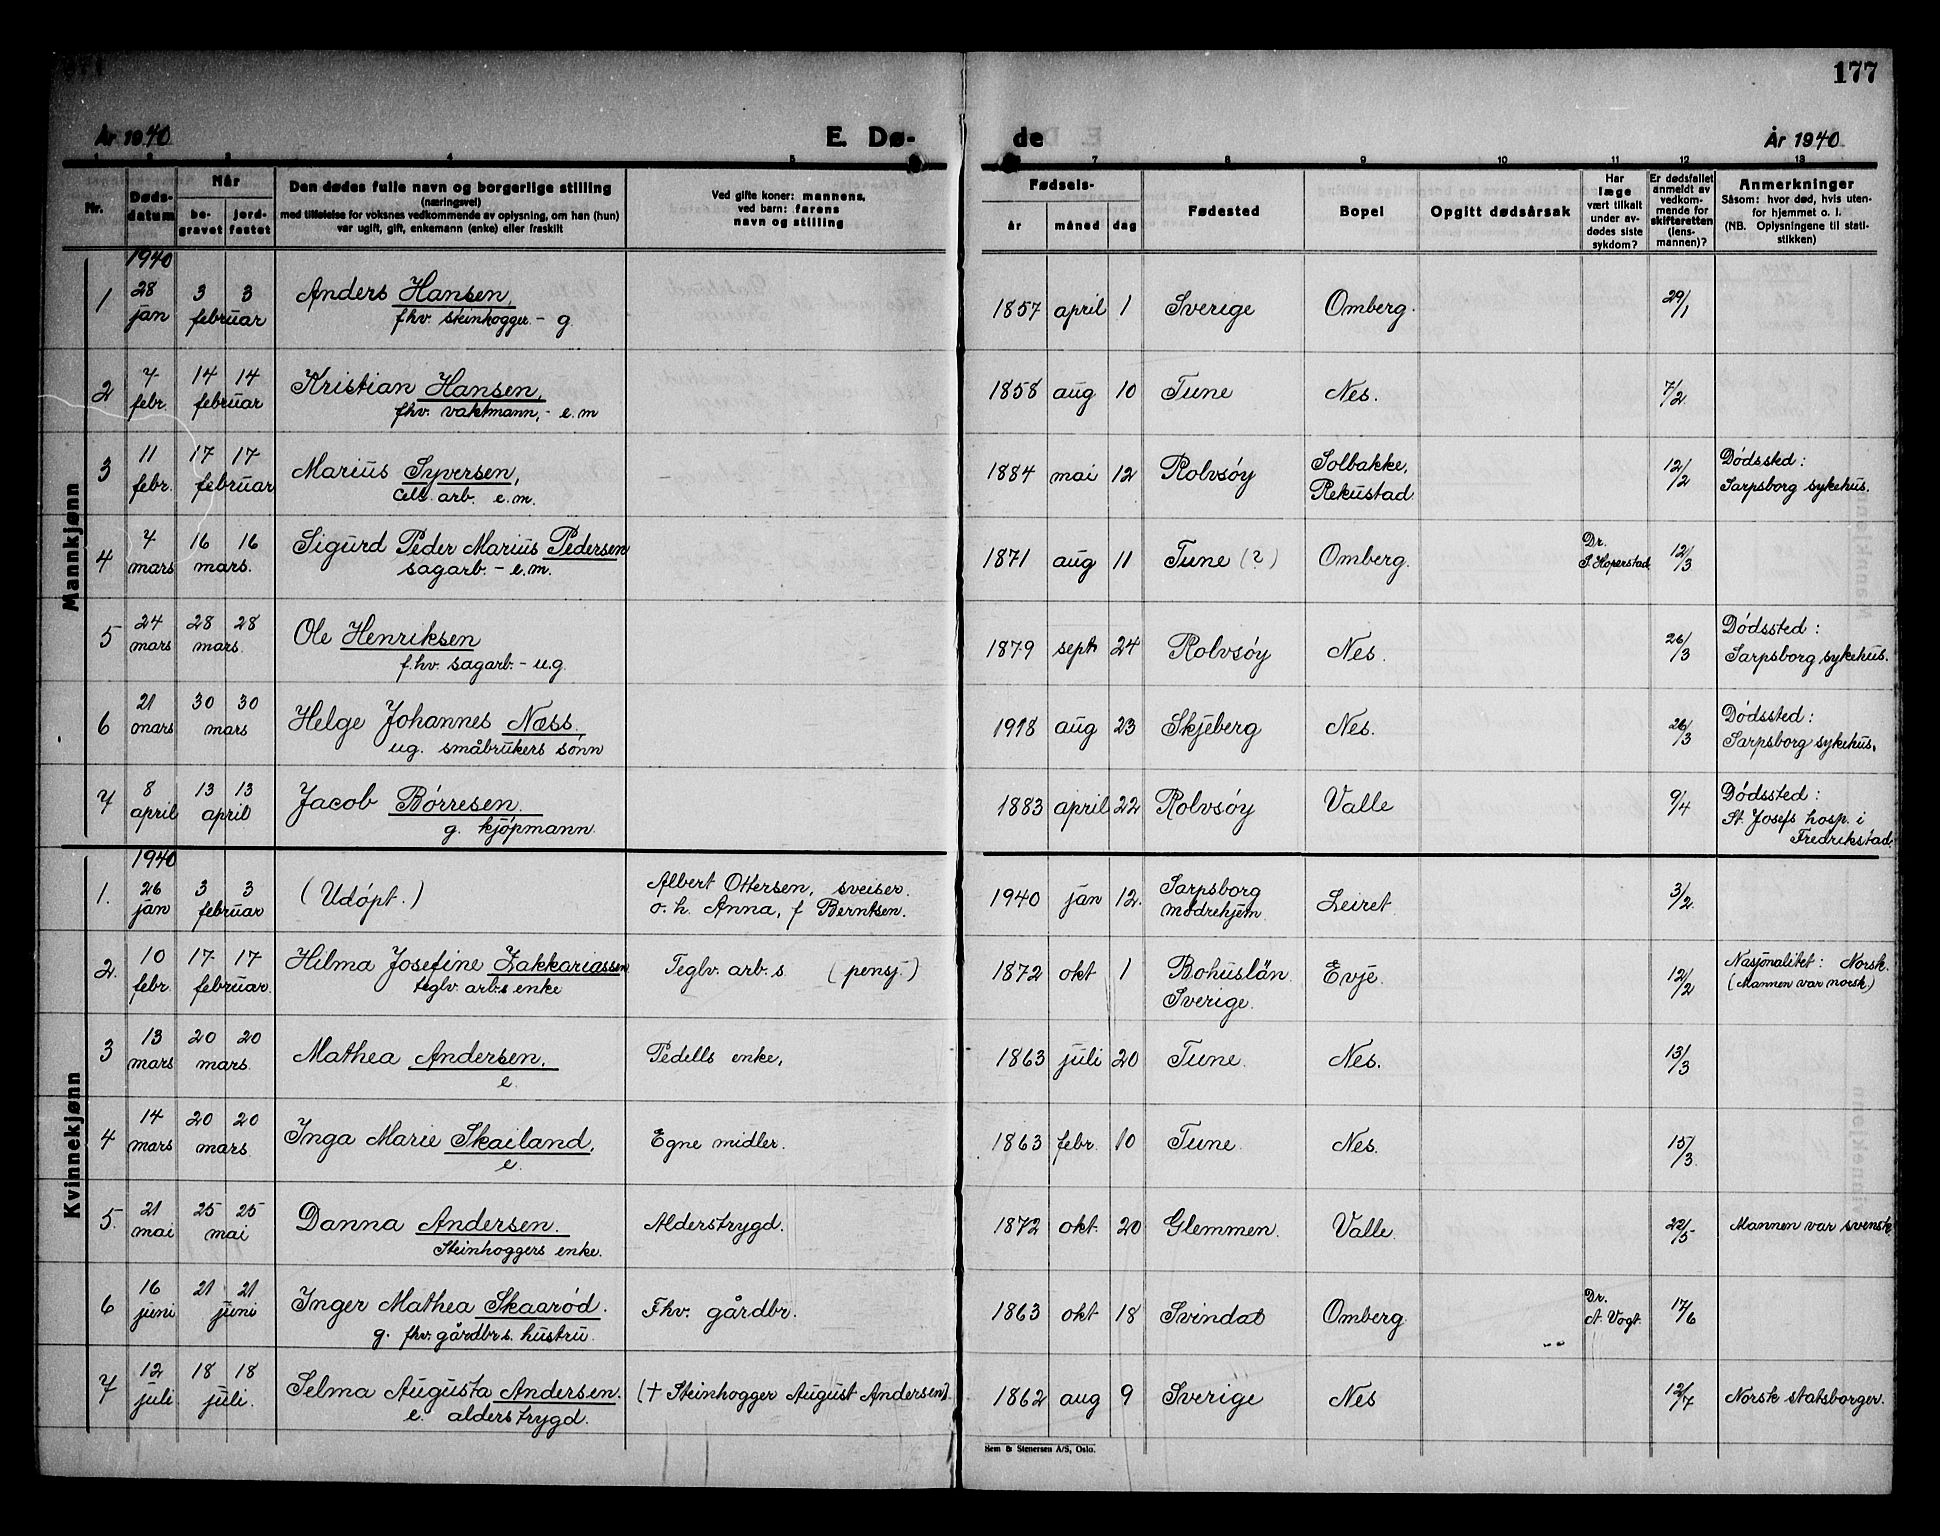 177
År 1940 E. Dø- de År 1940
1 2 3 4 5 7 8 9 10 11 12 13
Nr.
Døds-
datum
Når
be-
gravet
jord-
festet
Den dødes fulle navn og borgerlige stilling
(næringsvei)
med tilføielse for voksnes vedkommende av oplysning, om han (hun)
var ugift, gift, enkemann (enke) eller fraskilt
Ved gifte koner: mannens,
ved barn: farens
navn og stilling
Fødsels-
år måned dag
Fødested
Bopel
Opgitt dødsårsak
Har
læge
vært tilkalt
under av-
dødes siste
sykdom?
Er dødsfallet
anmeldt av
vedkom-
mende for
skifteretten
(lens-
mannen)?
Anmerkninger
Såsom: hvor død, hvis uten-
for hjemmet o. l.
(NB. Oplysningene til stati-
stikken)
Mankjønn
1940
1 28 jan 3 3 februar Anders Hansen, 1857 april 1 Sverige Omberg. 29/1
fhv. steinhogger. - g.
2 7 febr. 14 14 februar Kristian Hansen, 1858 aug 10 Tune Nes. 7/2
fhv. vaktmann, - e.m
3 11 febr. 17 17 februar Marius Syversen, 1884 mai 12 Rolvsøy Solbakke, Rekustad 12/2 Dødssted:
Cell. arb. e.m. Sarpsborg sykehus.
4 7 mars 16 16 mars. Sigurd Peder Marius Pedersen 1871 aug 11 Tune (?) Omberg. Dr. S. Hoperstad 12/3
sagarb. - e.m.
5 24 mars 28 28 mars. Ole Henriksen 1879 sept 24 Rolvsøy Nes. 26/3 Dødssted:
f.hv. sagarb. - u.g. Sarpsborg sykehus.
6 21 mars 30 30 mars Helge Johannes Næss. 1918 aug 23 Skjeberg Nes. 26/3 Dødssted:
ug. småbrukers sønn Sarpsborg sykehus.
7 8 april 13 13 april Jacob Børresen. 1883 april 22 Rolvsøy Valle 9/4 Dødssted:
g. kjøpmann. St. Josefs hosp. i
Fredrikstad
Kvinnekjønn
1940
1. 26 jan 3 3 februar (Udøpt.) Albert Ottersen, sveiser. 1940 jan 12. Sarpsborg Leiret. 3/2
o. h. Anna, f Berntsen. mødrehjem.
2. 10 febr. 17 17 februar. Hilma Josefine Zakkariassen Teglv. arb.s (pensj.) 1872 okt 1 Bohuslän Evje. 12/2 Nasjonalitet: Norsk.
teglv. arb.s enke Sverige. (Mannen var norsk.)
3 13 mars 20 20 mars. Mathea Andersen. Pedells enke, 1863 juli 20 Tune. Nes. 13/3
e.
4 14 mars 20 20 mars. Inga Marie Skailand, Egne midler. 1863 febr. 10 Tune. Nes. 15/3
e.
5. 21 mai 25 25 mai Danna Andersen. Alderstrygd. 1872 okt. 20 Glemmen. Valle. 22/5 Mannen var svensk
Steinhoggers enke.
6 16 juni 21 21 juni Inger Mathea Skaarød. Fhv. gårdbr. 1863 okt 18 Svindal Omberg. Dr. A. Vogt. 17/6
g. fhv. gårdbr.s. hustru.
7 12 juli 18 18 juli. Selma Augusta Andersen. († Steinhogger August Andersen). 1862 aug 9 Sverige Nes 12/7 Norsk statsborger.
e. alderstrygd.
Sem & Stenersen A/S, Oslo.